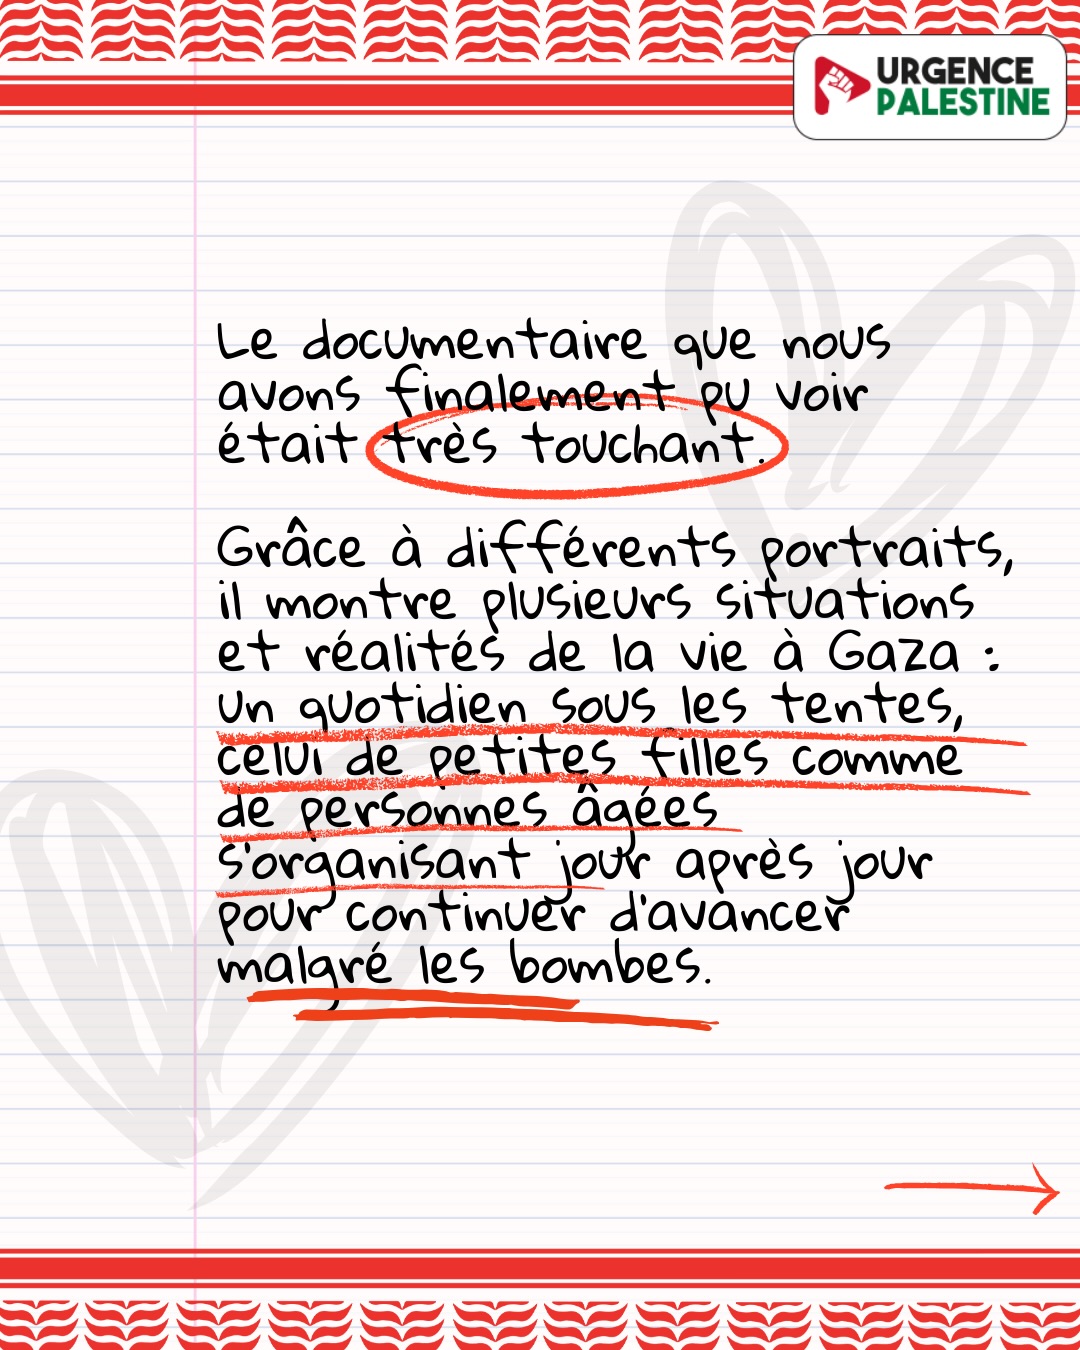 URGENCE
PALESTINE
Le documentaire que nous
avons finalement pu voir
était très touchant.
Grâce à différents portraits,
il montre plusieurs situations
et réalités de la vie à Gaza :
un quotidien sous les tentes,
celui de petites filles comme
de personnes âgées
s'organisant jour après jour
pour continuer d'avancer
malgré les bombes.